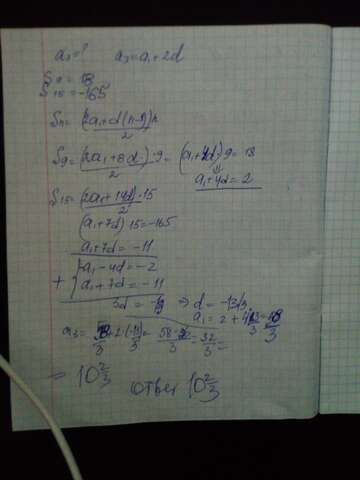 a₃ = ? a₃ = a₁ + 2d
S₉ = 18
S₁₅ = -165
Sₙ = (2a₁ + d(n-1))n / 2
S₉ = (2a₁ + 8d)·9 / 2 = (a₁ + 4d) 9 = 18
a₁ + 4d = 2
S₁₅ = (2a₁ + 14d)·15 / 2
(a₁ + 7d) 15 = -165
a₁ + 7d = -11
-a₁ - 4d = -2
+ a₁ + 7d = -11
3d = -13 ⇒ d = -13/3
a₁ = 2 +
a₃ = 58-26 / 3 = 32/3 =
= 10 2/3 ответ 10 2/3